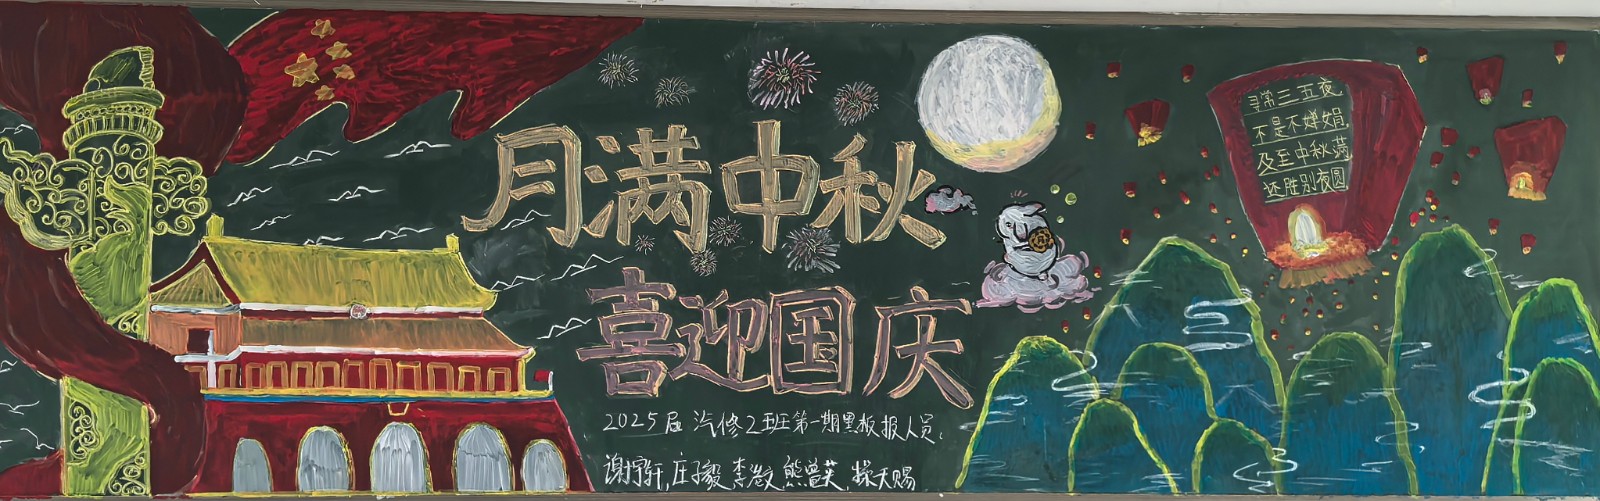 月满中秋
喜迎国庆
2025届 汽修2班第一期黑板报人员、
谢宇轩, 庄子毅 李 熊 英, 天赐
寻常三五夜
不是不婵娟
及至中秋满
还胜别夜圆